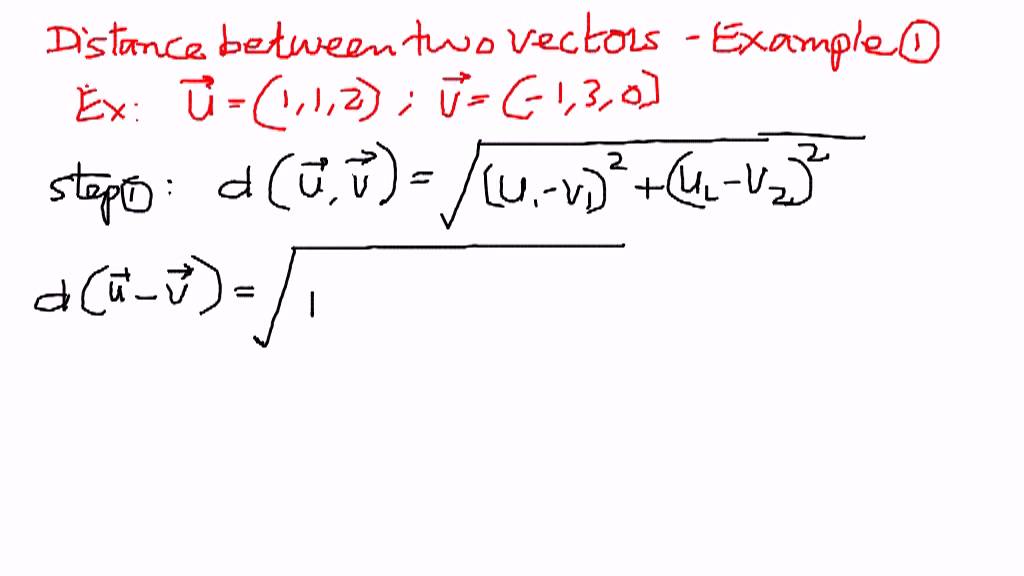 Distance between two vectors - Example ①
Ex: u⃗ = (1,1,2) ; v⃗ = (-1,3,0]
step①: d(u⃗,v⃗) = √((u₁-v₁)²+(u₂-v₂)²)
d(u⃗-v⃗) = √(1